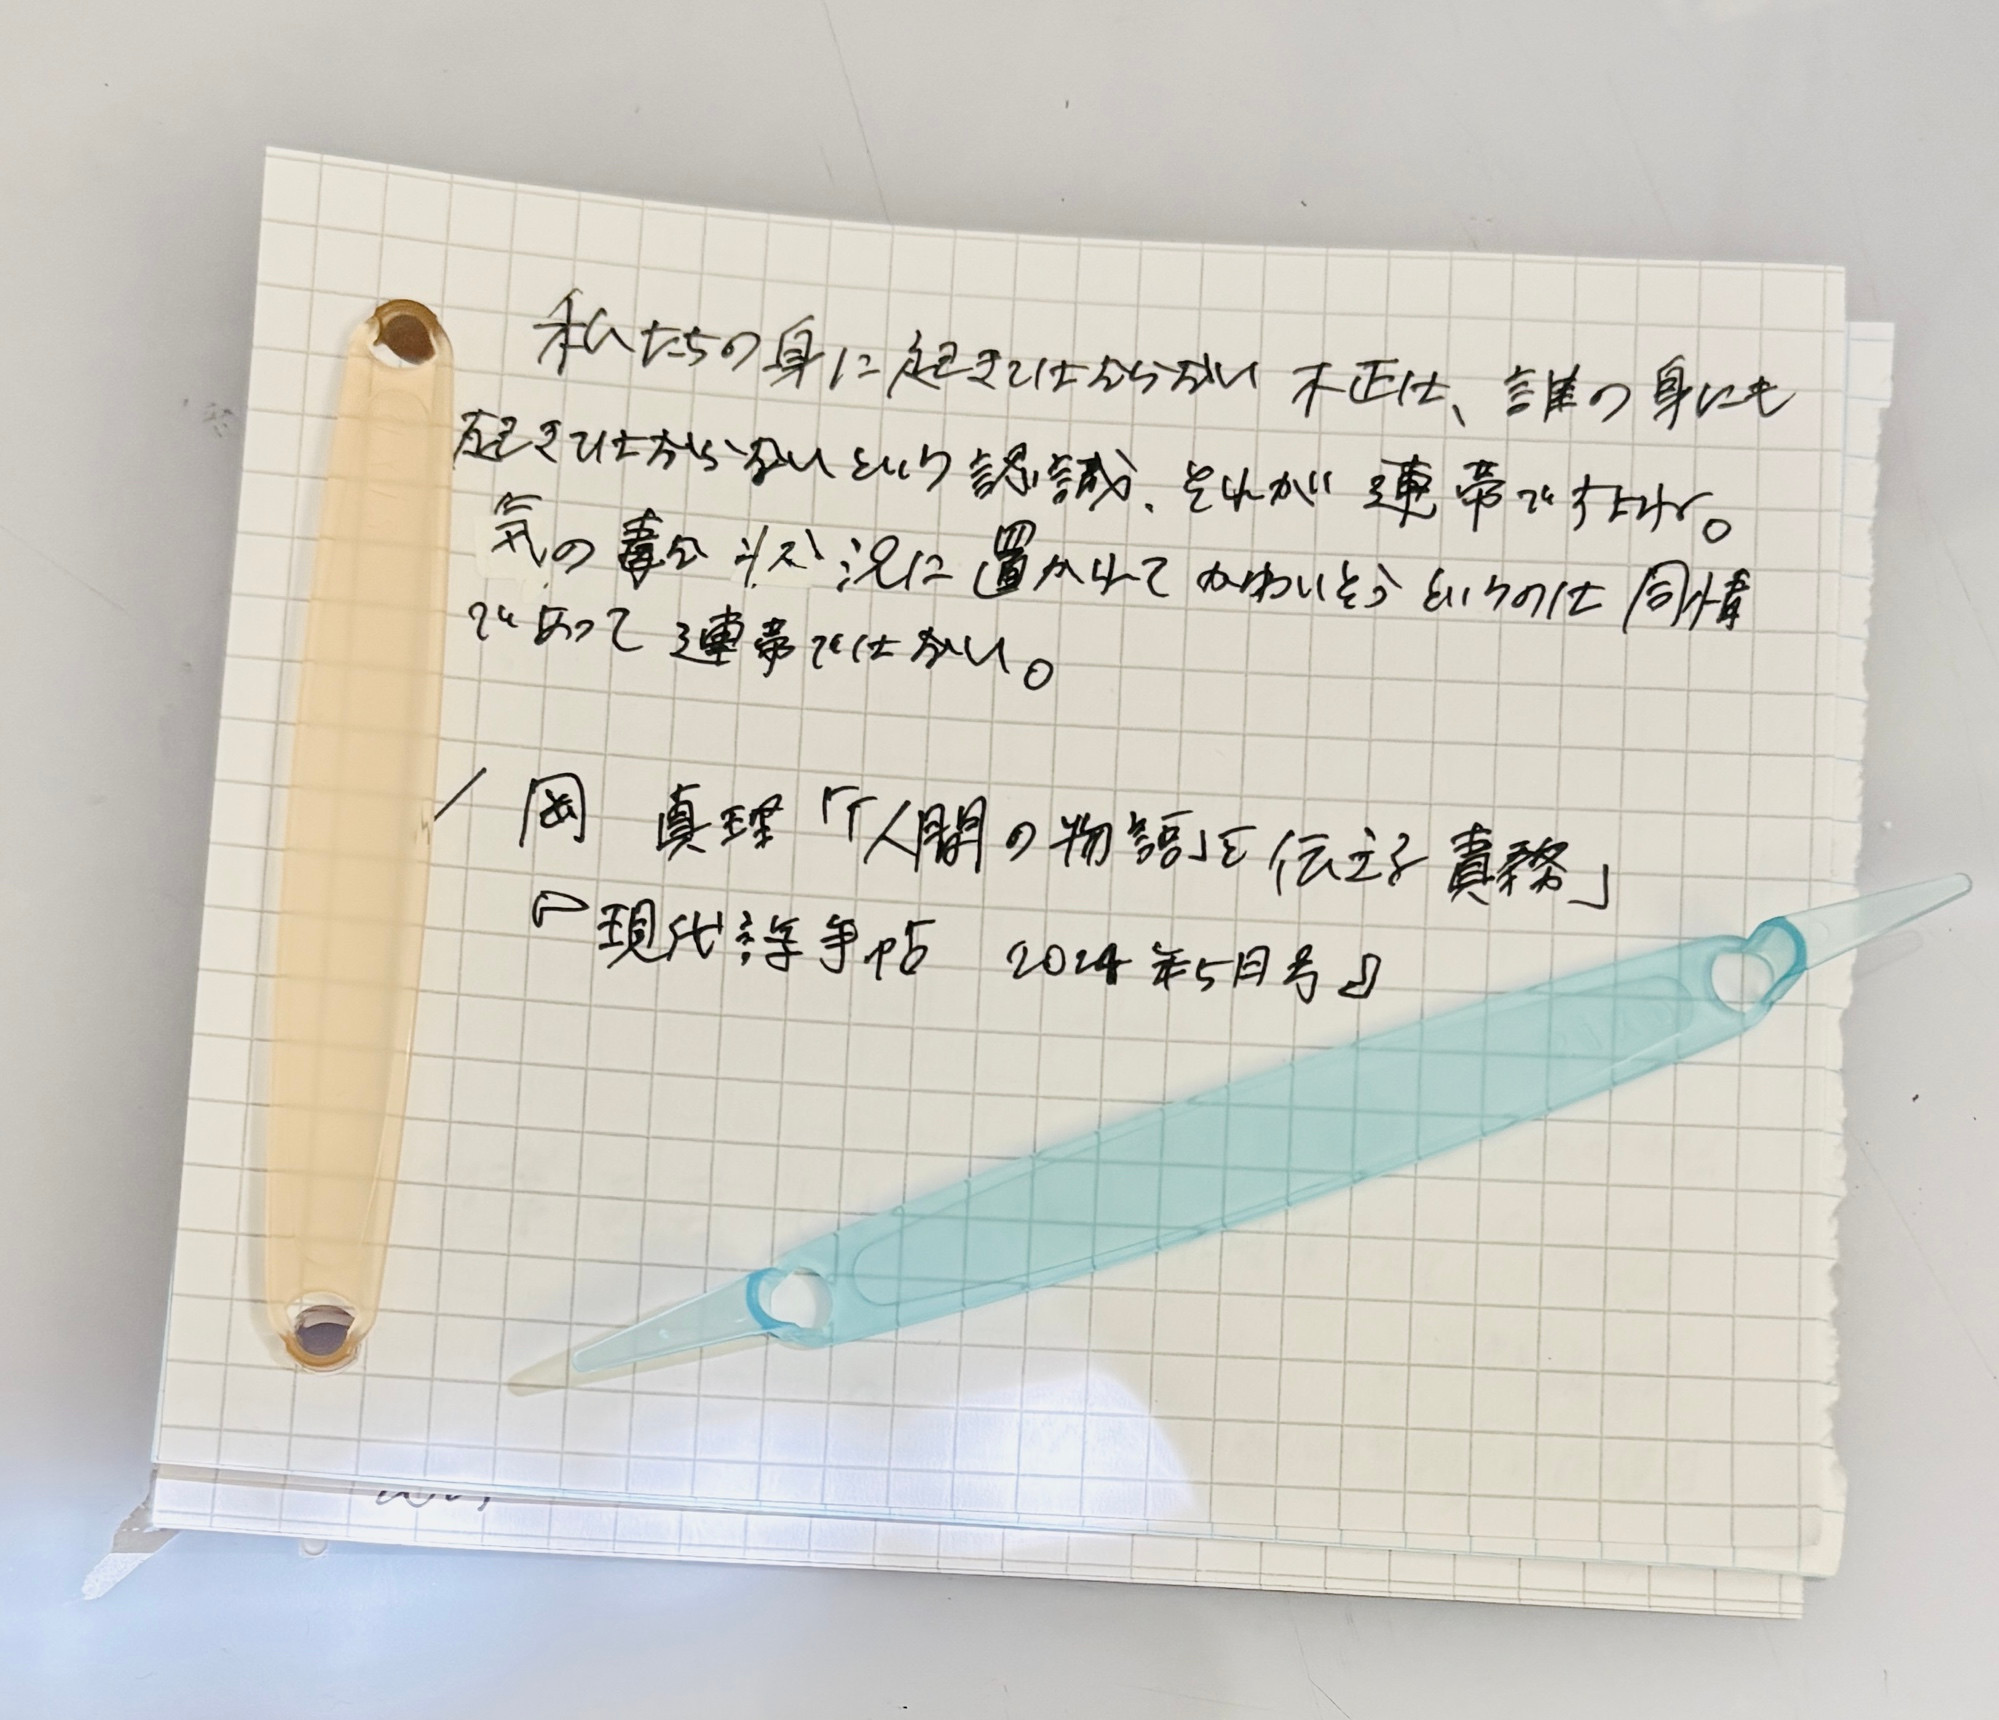 私たちの身に起きてはならない不正は、誰の身にも
起きてはならないという認識、それが連帯ですよね。
気の毒な状況に置かれてかわいそうというのは同情
であって連帯ではない。
／岡 真理「「人間の物語」を伝える責務」
『現代詩手帖 2024年5月号』